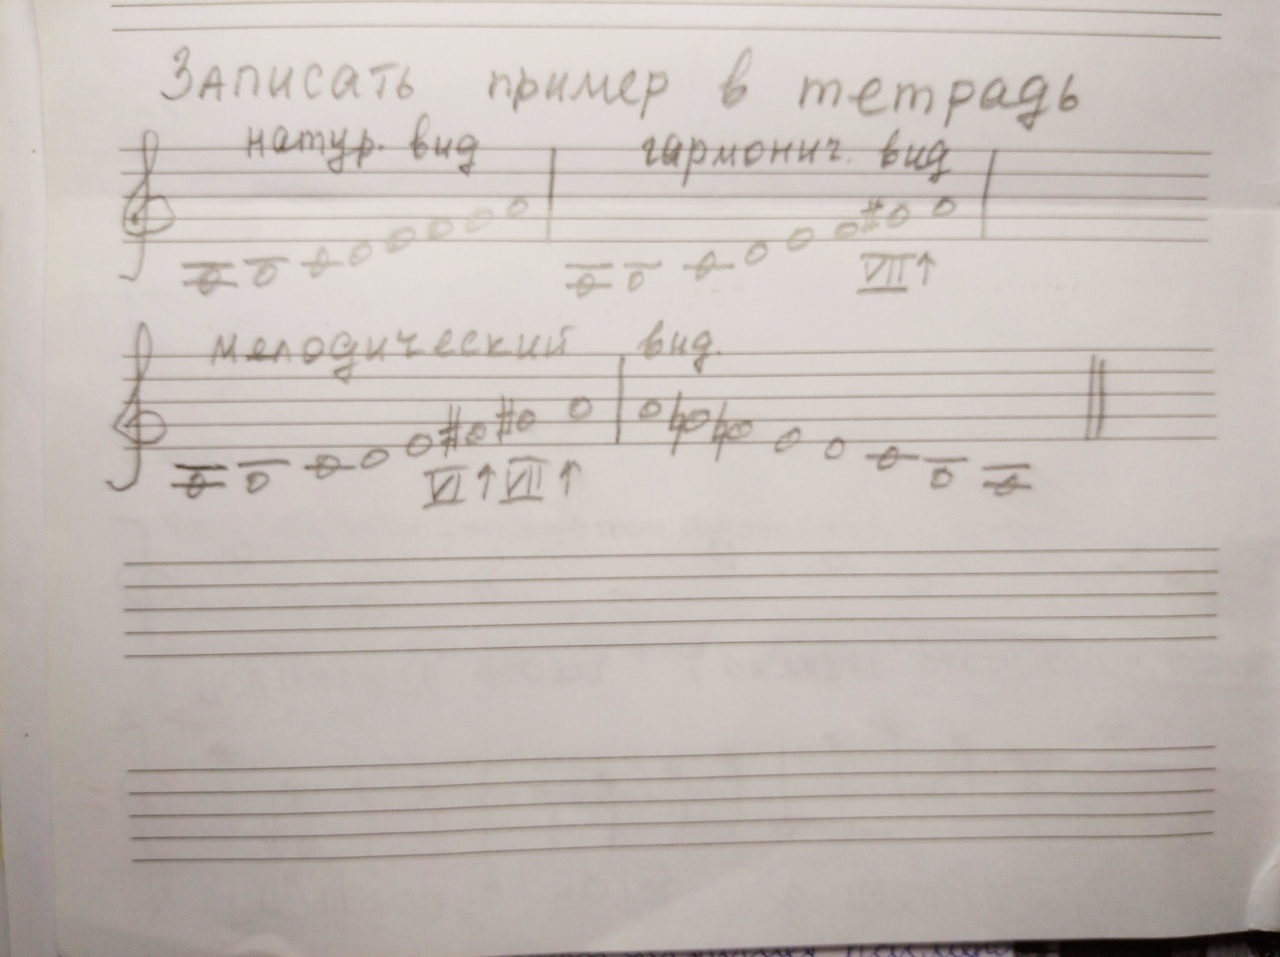 Записать пример в тетрадь
натур. вид гармонич. вид
VII↑
мелодический вид.
VI↑ VII↑